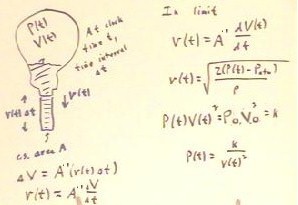 P(t)
V(t)
At clock
time t,
time interval
Δt
v(t)Δt
v(t)
c.s. area A
ΔV = A''(v(t) Δt)
v(t) = A'' ΔV/Δt
In limit
v(t) = A'' dV(t)/dt
v(t) = √(2(P(t) - Patm)/ρ)
P(t)V(t)² = P₀,V₀² = k
P(t) = k/v(t)²